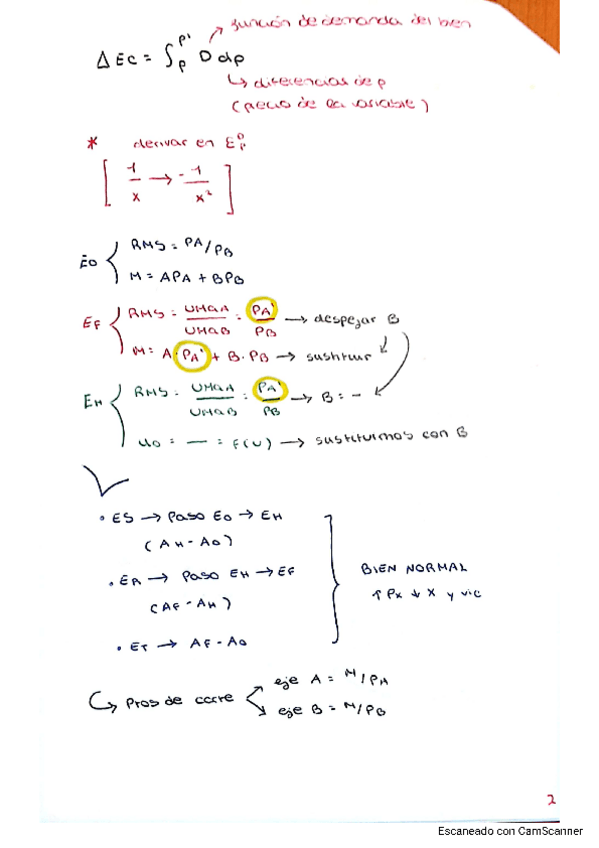 función de demanda del bien
Δ EC = ∫ₚᵖ' D dp
↳ diferencias de p
(precio de la variable)
* derivar en Eₚᴰ
[ 1/x → -1/x² ]
Eo { RMS = PA/PB
M = APA + BPB
EF { RMS = UMGA/UMGB = PA'/PB → despejar B
M = A·PA' + B·PB → sustituir
EH { RMS = UMGA/UMGB = PA'/PB → B = -
Uo = — = F(U) → sustituimos con B
• ES → Paso Eo → EH
(AH - AO)
• ER → Paso EH → EF
(AF - AH)
BIEN NORMAL
↑ Px ↓ X y vic
• ET → AF - AO
↳ Ptos de corte
eje A = M/PA
eje B = M/PB
2
Escaneado con CamScanner